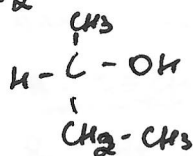 CH3
H - C - OH
CH2 - CH3